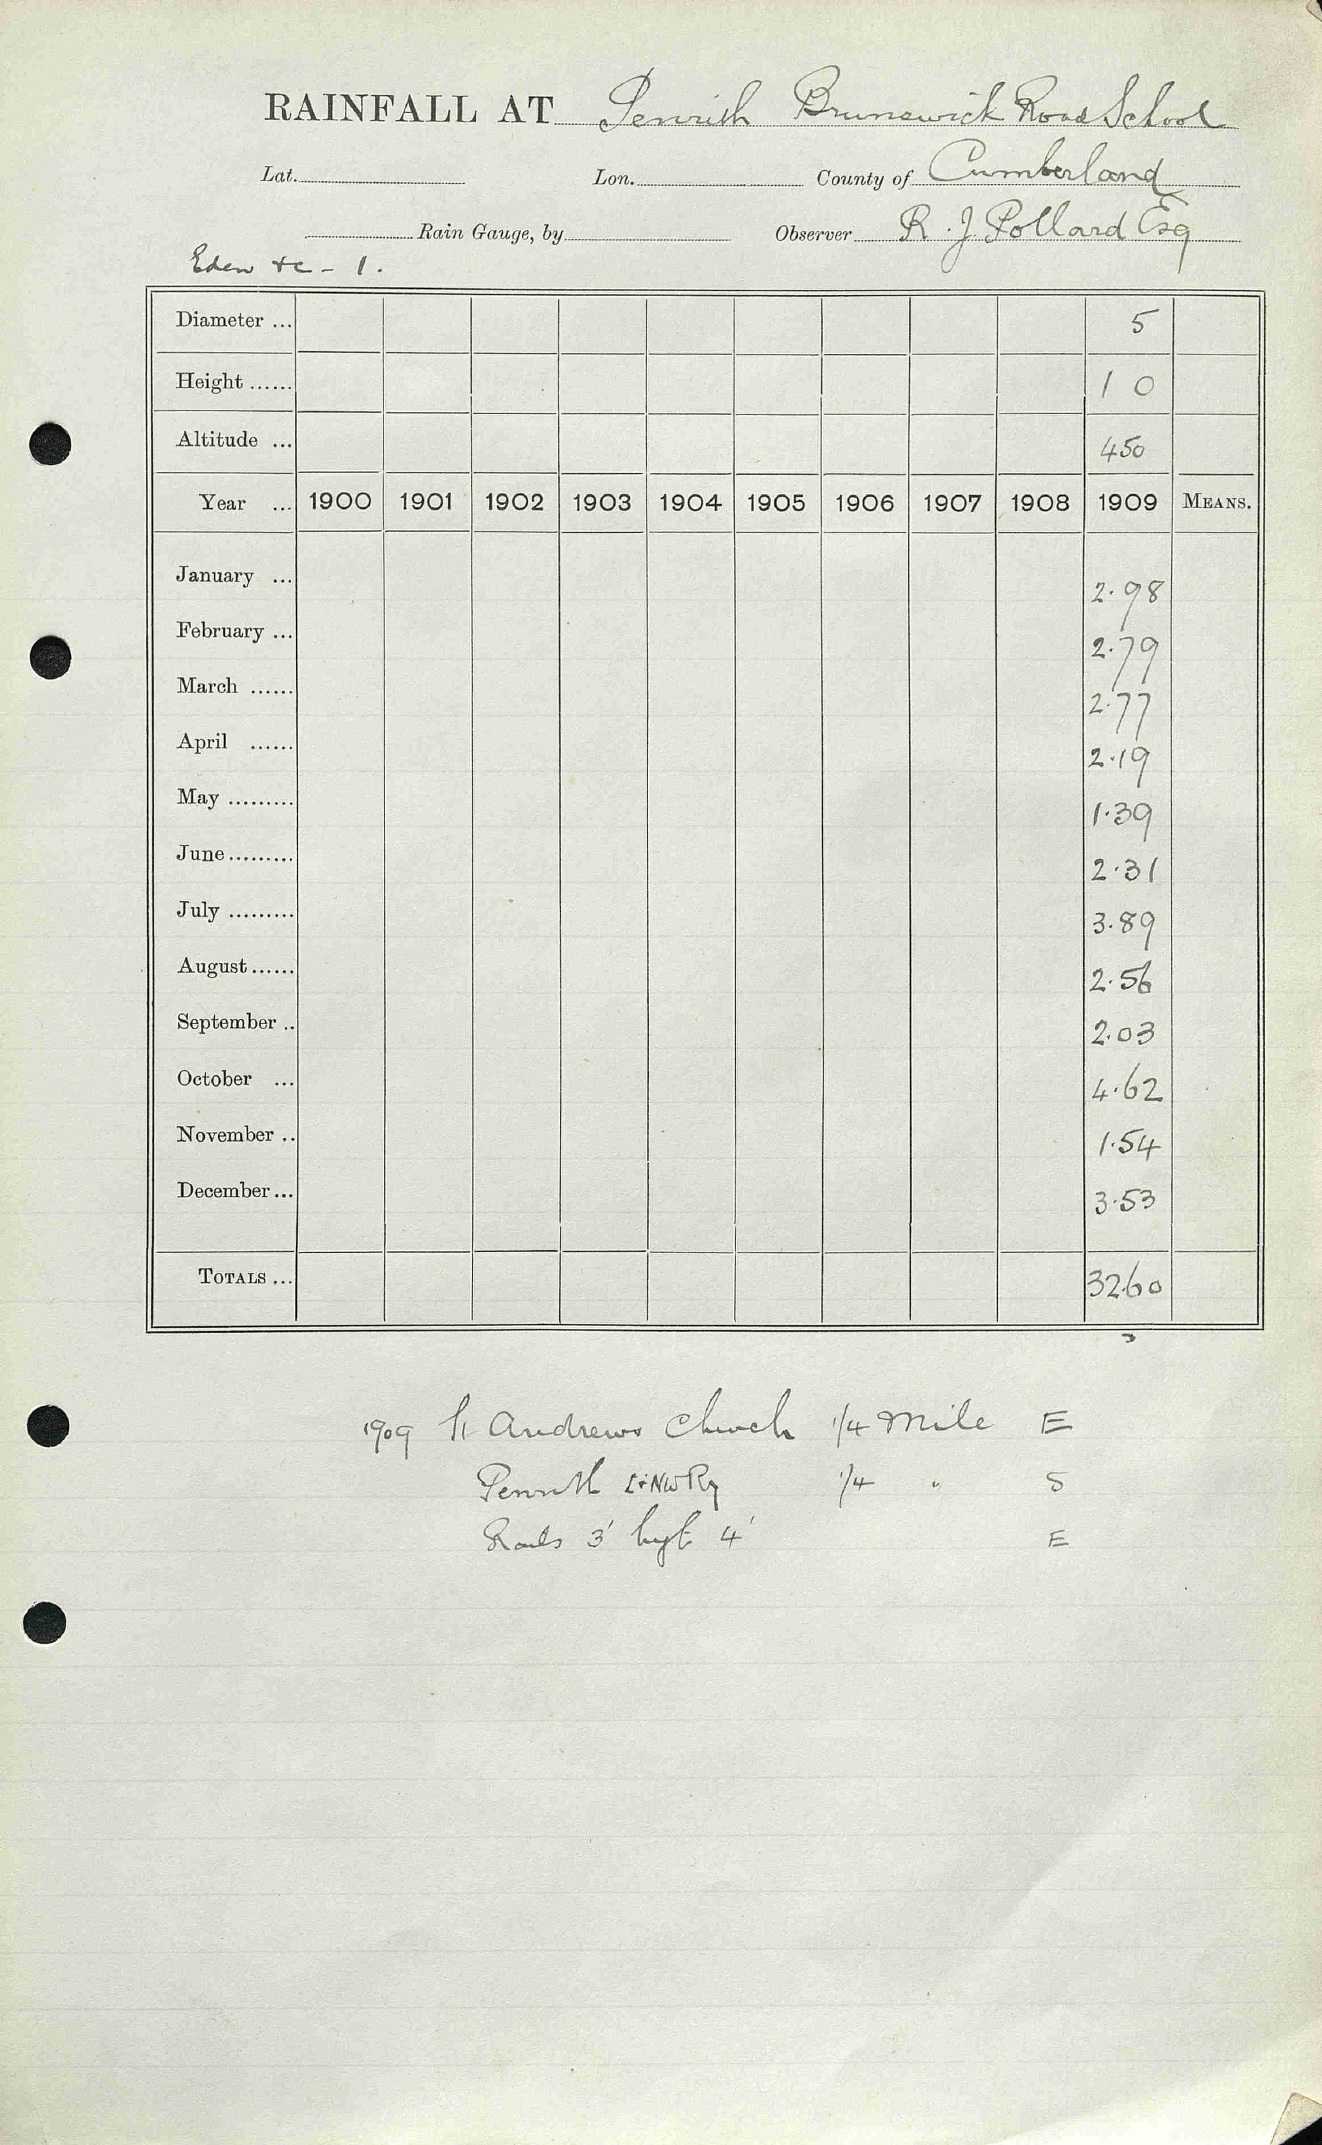 RAINFALL AT Penrith Brunswick Road School
Lat. Lon. County of Cumberland
Rain Gauge, by Observer R. J. Pollard Esq
Eden &c - 1.
Diameter ... 5
Height ...... 1 0
Altitude ... 450
Year ... 1900 1901 1902 1903 1904 1905 1906 1907 1908 1909 MEANS.
January ... 2.98
February ... 2.79
March ...... 2.77
April ...... 2.19
May ......... 1.39
June ......... 2.31
July ......... 3.89
August ...... 2.56
September .. 2.03
October ... 4.62
November .. 1.54
December ... 3.53
TOTALS ... 32.60
1909 St Andrews Church 1/4 Mile E
Penrith L&NW Ry 1/4 " S
Rails 3' hgt 4' E